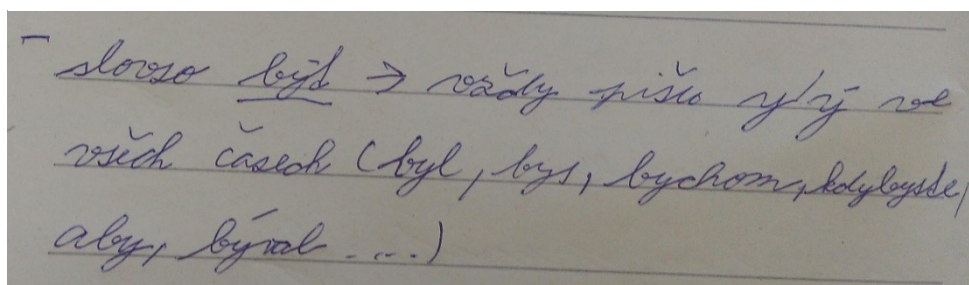 - slovso být → vždy píšu y/ý ve
všech časech (byl, bys, bychom, kdybyste,
aby, býval ...)